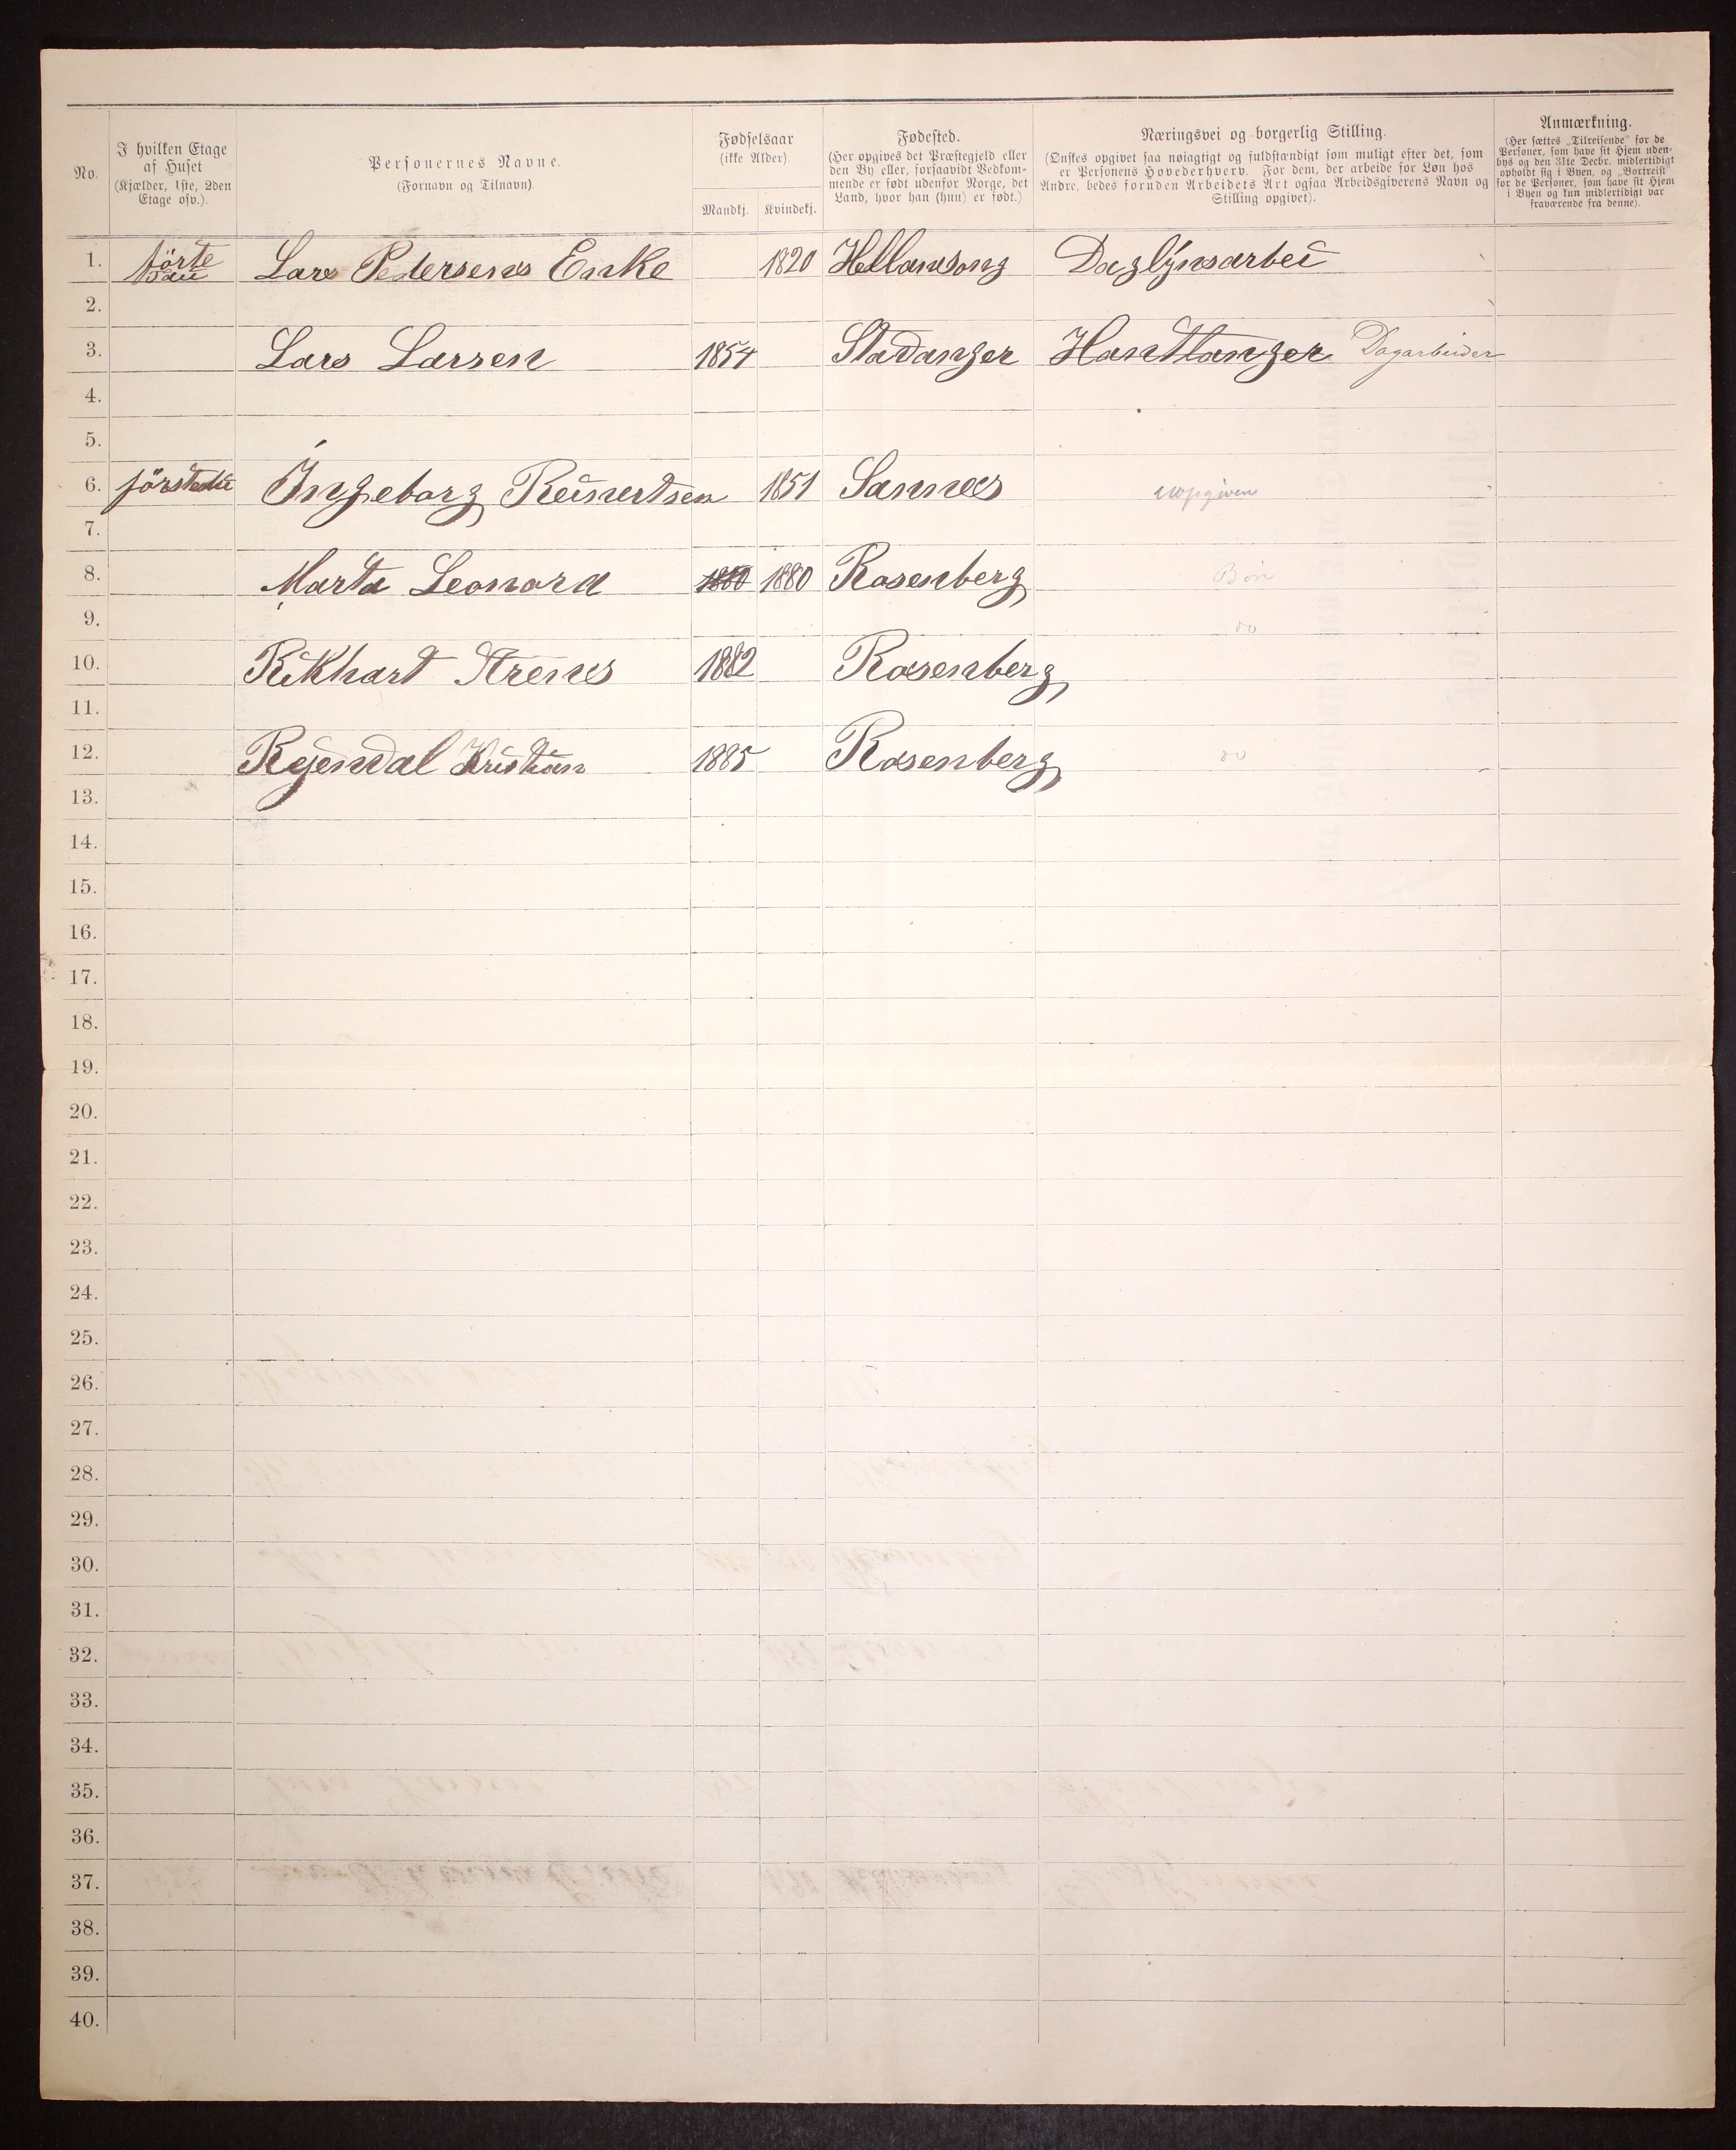 No.
I hvilken Etage
af Huset
(Kjælder, 1ste, 2den
Etage osv.).
Personernes Navne.
(Fornavn og Tilnavn).
Fødselsaar
(ikke Alder)
Mandkj. Kvindekj.
Fødested.
(Her opgives det Præstegjeld eller
den By eller, forsaavidt Vedkom-
mende er født udenfor Norge, det
Land, hvor han (hun) er født.)
Næringsvei og borgerlig Stilling.
(Ønskes opgivet saa nøiagtigt og fuldstændigt som muligt efter det, som
er Personens Hovederhverv. For dem, der arbeide for Løn hos
Andre, bedes foruden Arbeidets Art ogsaa Arbeidsgiverens Navn og
Stilling opgivet).
Anmærkning.
(Her sættes „Tilreisende" for de
Personer, som have sit Hjem uden-
bys og den 31te Decbr. midlertidigt
opholdt sig i Byen, og „Bortreist"
for de Personer, som have sit Hjem
i Byen og kun midlertidigt var
fraværende fra denne).
1. Lars Pedersens Enke 1820 Hellansong Daglýnsarbei
2.
3. Lars Larsen 1854 Stavanger Hantlanger Dagarbeider
4.
5.
6. Ingeborg Reinertsen 1851 Sannes uopgiven
7.
8. Marta Leonora 1880 1880 Rosenberg Børn
9. do
10. Rikhart Strenes 1882 Rosenberg
11.
12. Rejendal Kristian 1885 Rosenberg do
13.
14.
15.
16.
17.
18.
19.
20.
21.
22.
23.
24.
25.
26.
27.
28.
29.
30.
31.
32.
33.
34.
35.
36.
37.
38.
39.
40.